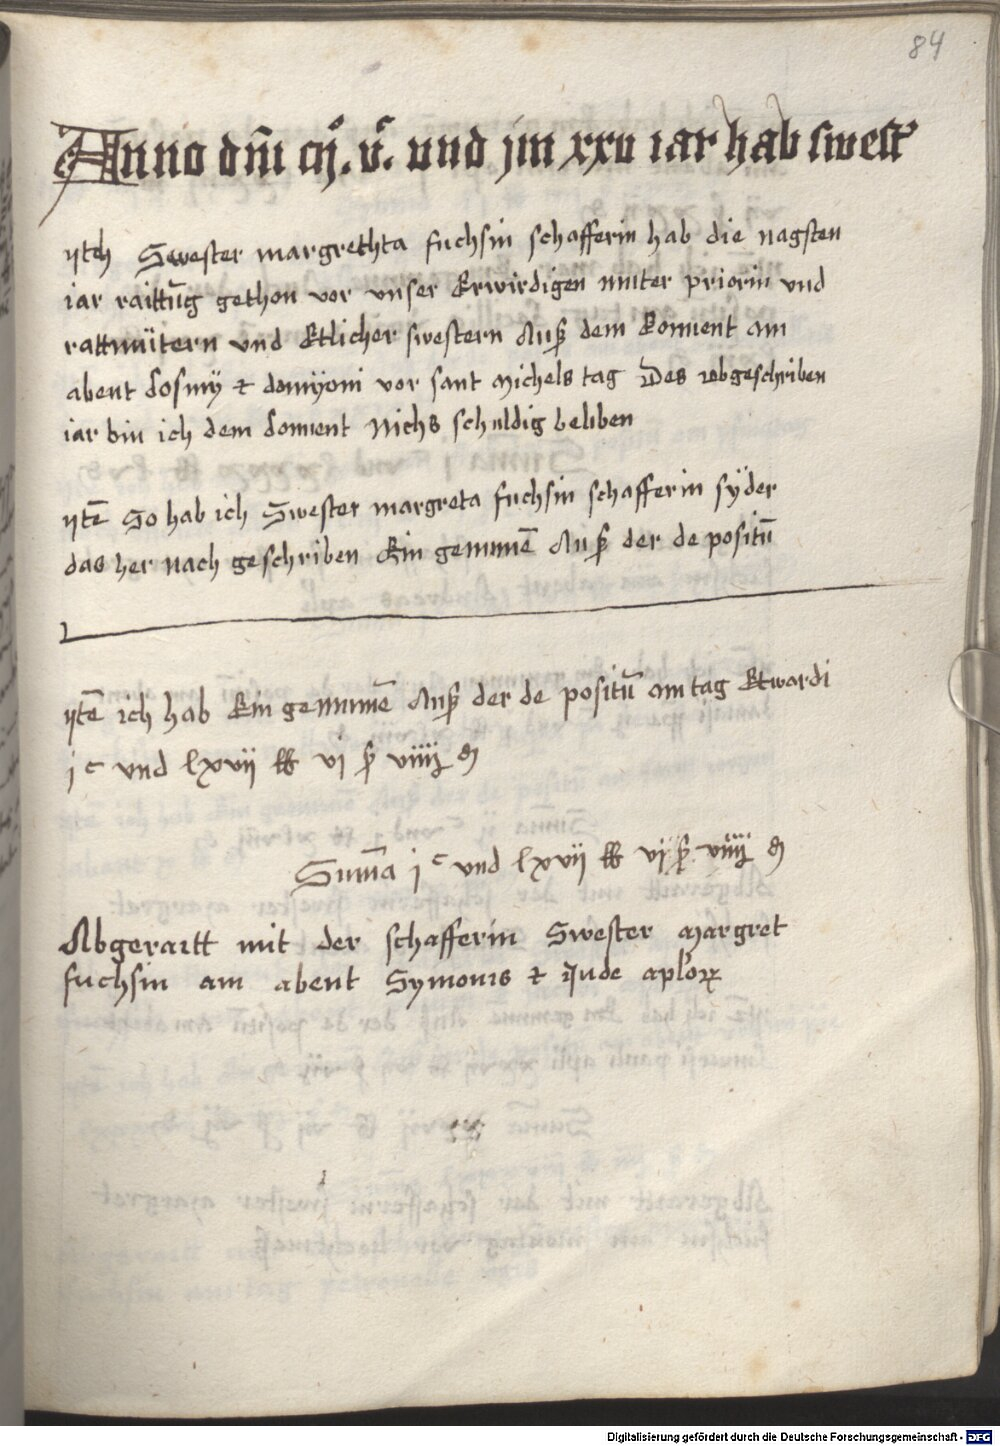 84
Anno dñi cıȷ°. vᶜ. und jm xxv iar hab swestʼ
ytē Swester margrethta fuchsin schafferin hab die nagsten
iar raittũg gethon vor vnser Erwirdigen muter priorin vnd
rattmütern vnd Etlicher swestern Auß dem Conuent am
abent Cosmÿ et domÿoni vor sant Michels tag Des obgeschriben
iar bin ich dem Conuent Nichs schuldig beliben
ytē So hab ich Swester margreta fuchsin schafferin sÿder
das her nach geschriben Ein genumē Auß der de positũ
ytē ich hab Ein genumē Auß der de positũ am tag Etwardi
jᶜ vnd lxvij lb vj ß viiij d
Sum̃a jᶜ vnd lxvij lb vj ß viiij d
Abgeraitt mit der schafferin Swester Margret
fuchsin am abent Symonis et Jude aplʼoꝝ
Digitalisierung gefördert durch die Deutsche Forschungsgemeinschaft - DFG